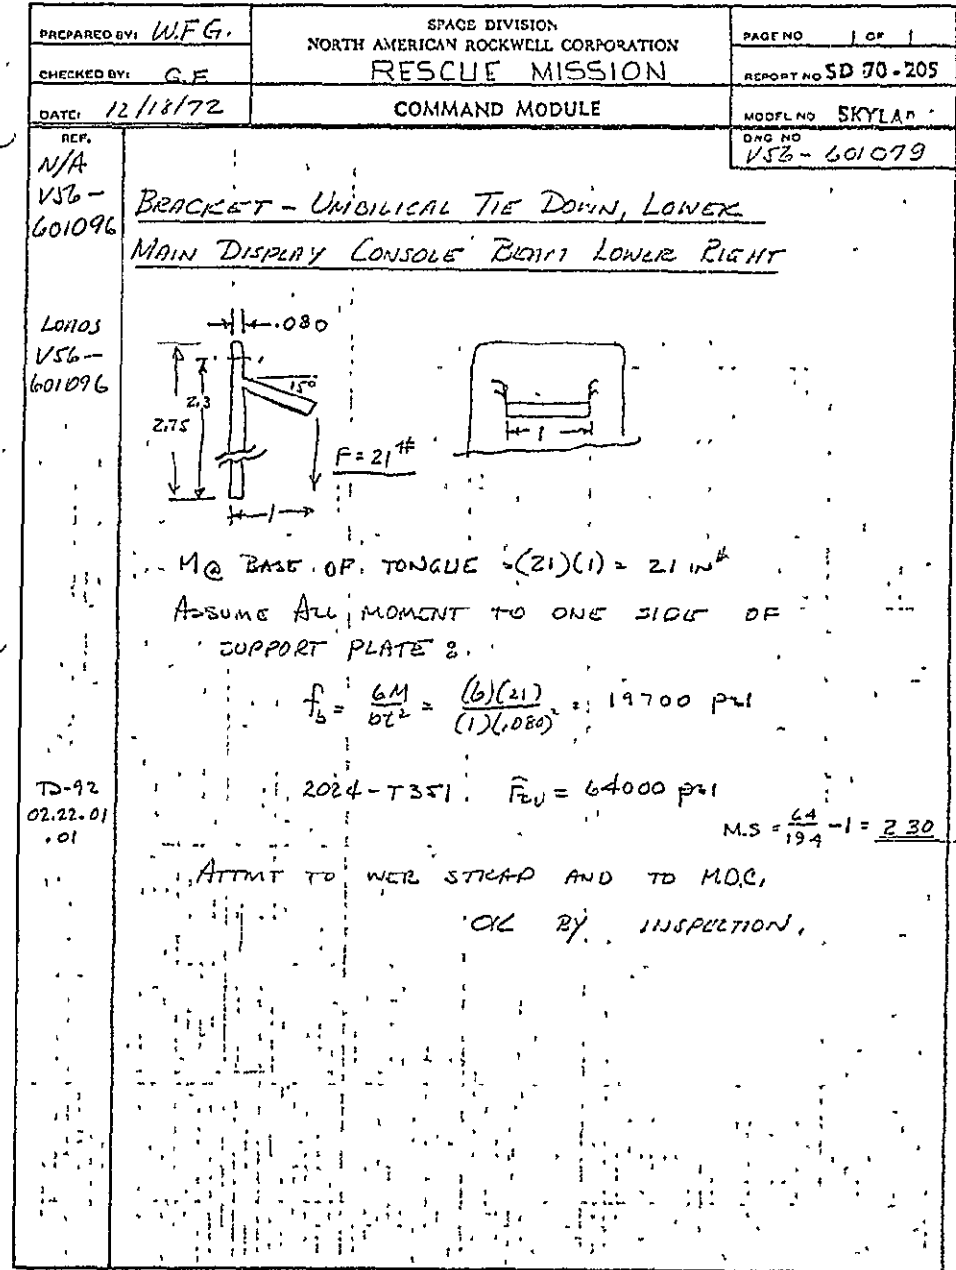 PREPARED BY: W.F.G.
CHECKED BY: G.F.
DATE: 12/18/72
SPACE DIVISION
NORTH AMERICAN ROCKWELL CORPORATION
RESCUE MISSION
COMMAND MODULE
PAGE NO 1 OF 1
REPORT NO SD 70-205
MODEL NO SKYLAB
DWG NO
V56-601079
REF.
N/A
V56-
601096
BRACKET - UMBILICAL TIE DOWN, LOWER
MAIN DISPLAY CONSOLE BEAM LOWER RIGHT
LOADS
V56-
601096
.080
15°
2.3
2.75
F = 21#
1
1
M@ BASE OF TONGUE = (21)(1) = 21 IN#
ASSUME ALL MOMENT TO ONE SIDE OF
SUPPORT PLATE
fb = 6M/bt² = (6)(21)/(1)(.080)² = 19700 psi
TD-92
02.22.01
.01
2024-T351. Ftu = 64000 psi
M.S = 64/19.4 -1 = 2.30
ATTMT TO STRAP AND TO M.D.C.
OK BY INSPECTION.